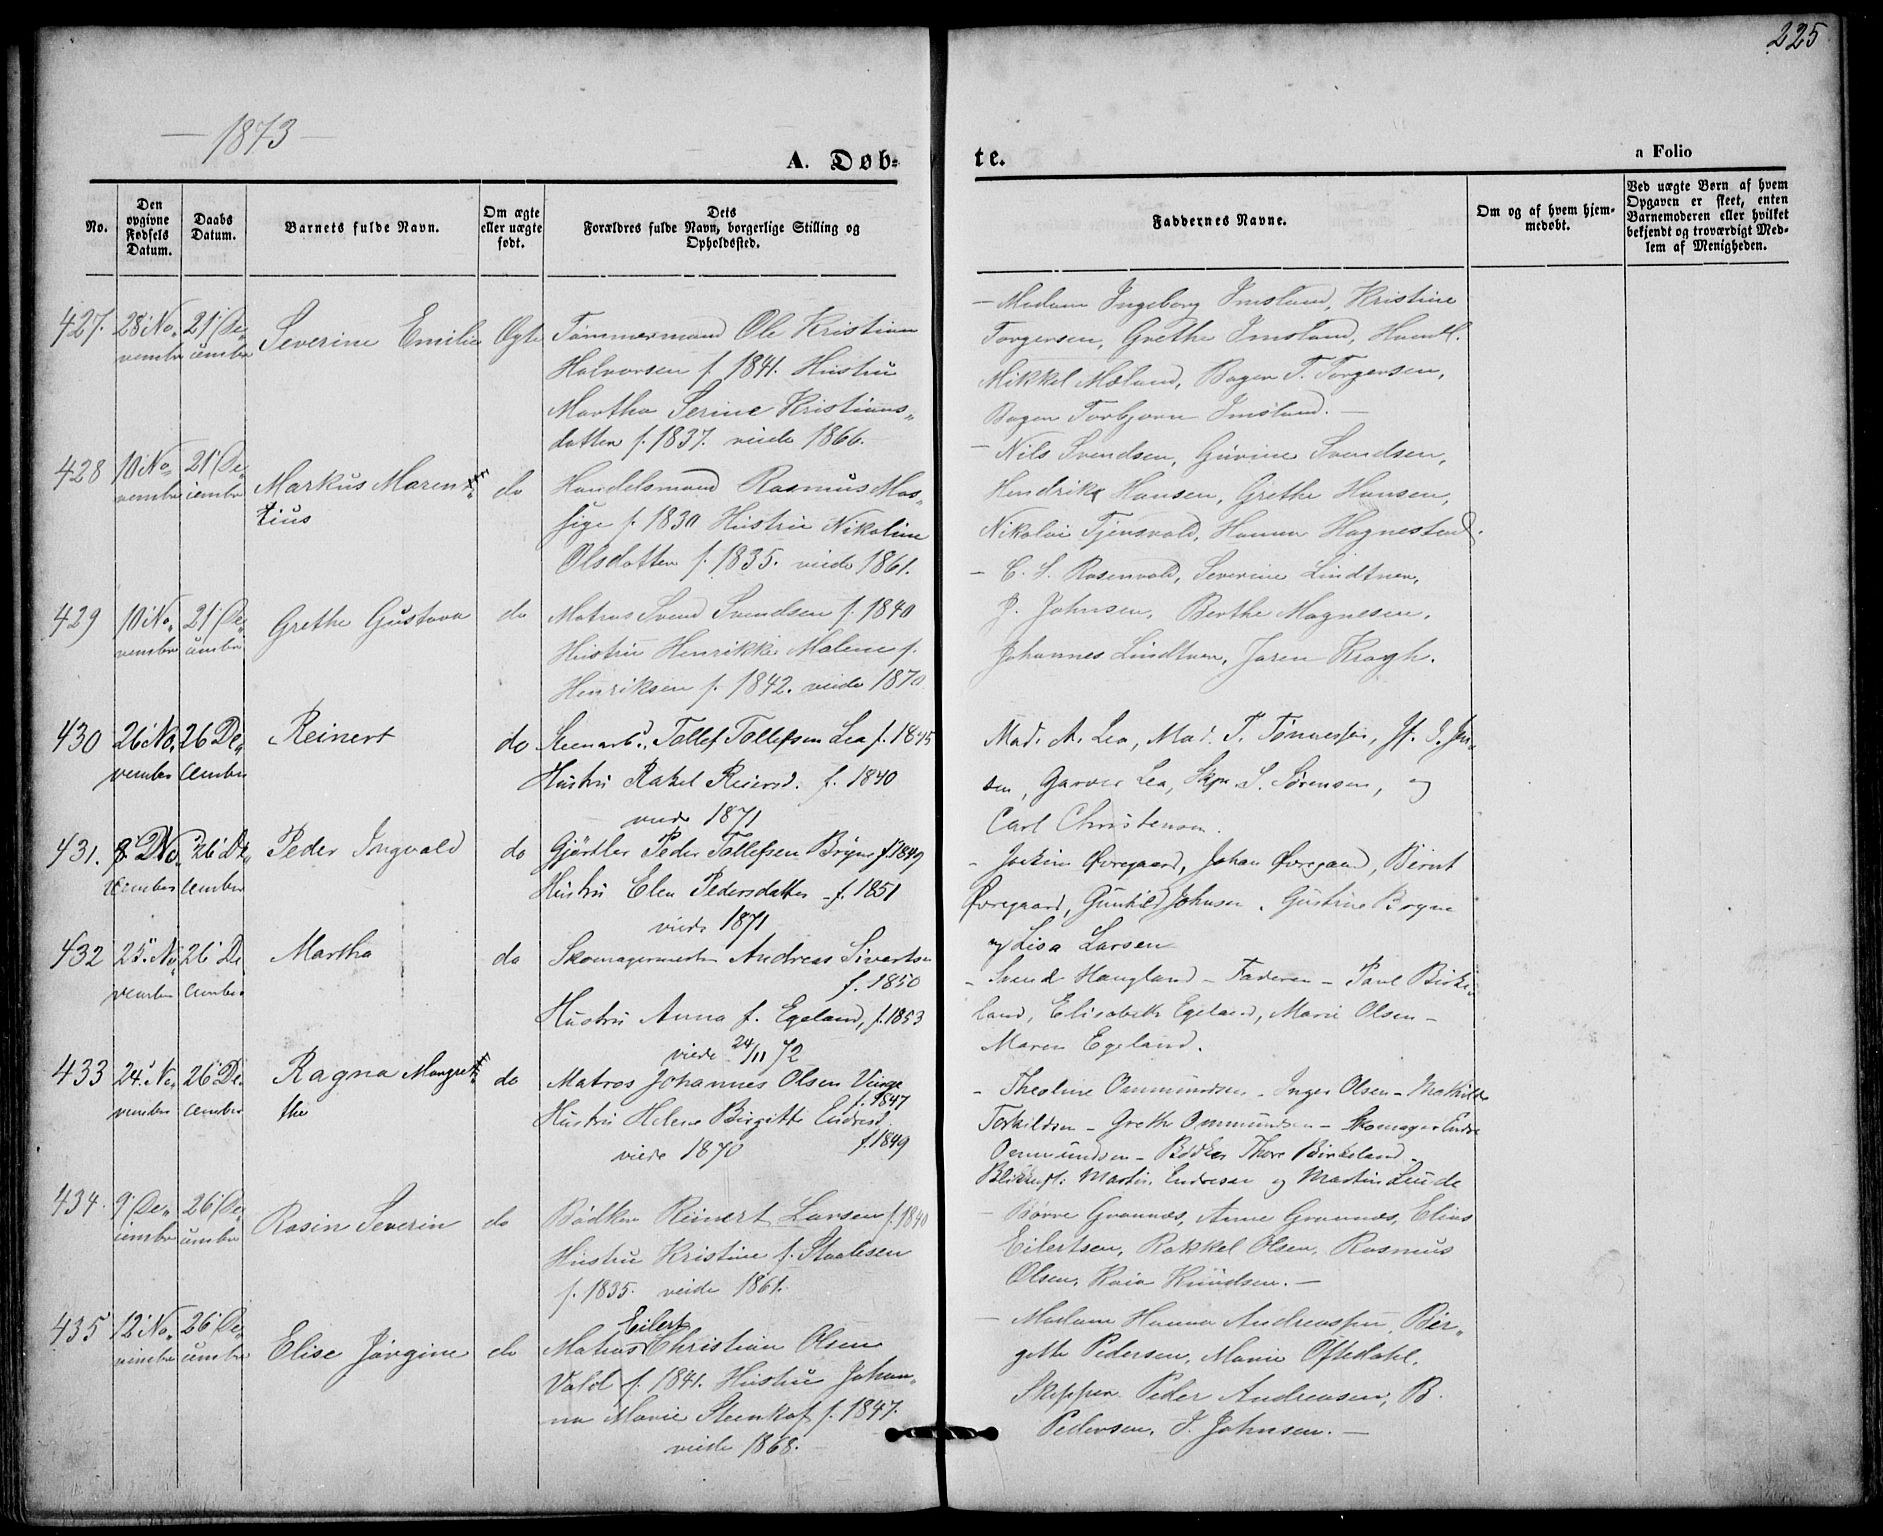 225
— 1873 —
A. Døb-
te.
a Folio
No.
Den opgivne Fødsels Datum.
Daabs Datum.
Barnets fulde Navn.
Om ægte eller uægte født.
Dets Forældres fulde Navn, borgerlige Stilling og Opholdssted.
Faddernes Navne.
Om og af hvem hjemmedøbt.
Ved uægte Børn af hvem Opgaven er skeet, enten Barnemoderen eller hvilket bekjendt og troværdigt Medlem af Menigheden.
427. 28' No- 21' De-
vember cember
Severine Emilie
Ægte
Tømmermand Ole Kristian
Halvorsen f. 1841. Hustru
Martha Serine Kristians-
datter f. 1837. viede 1866.
— Madam Ingeborg Imsland, Kristine
Torgersen, Grethe Imsland, Handl.
Mikkel Mæland, Bager T. Torgersen,
Bager Torbjørn Imsland. —
428 10' No- 21' De-
vember cember
Markus Maren-
tius
do
Handelsmand Rasmus Mos-
sige f. 1830 Hustru Nikoline
Olsdatter f. 1835. viede 1861.
— Nils Svendsen, Gurine Svendsen,
Hendrik Hansen, Grethe Hansen,
Nikolai Tjensvold, Hanna Hognestad.
429 10' No- 21' De-
vember cember
Grethe Gustava
do
Matros Svend Svendsen f. 1840
Hustru Henrikke Malene f.
Henriksen f. 1842. viede 1870
— C. S. Rosenvold, Severine Lindtner,
J. Johnsen, Berthe Magnesen,
Johannes Lindtner, Joren Kragh.
430 26 No- 26 De-
vember cember
Reinert
do
Steenarb. Tollef Tollefsen Lea f. 1845
Hustru Rakel Reiersd. f. 1840
viede 1871
Mad. A. Lea, Mad. T. Tønnesen, Jf. J. Jen-
sen, Garver Lea, Skpr. S. Sørensen, og
Carl Christensen.
431. No 26' De-
vember cember
Peder Ingvald
do
Gjørtler Peder Tollefsen Bryne f. 1849
Hustru Elen Pedersdatter f. 1851
viede 1871
- Joakim Øvregaard, Johan Øvregaard, Bernt
Øvregaard, Gunhild Johnsen, Gustine Bryne
og Lisa Larsen
432 25' No- 26' De
vember cember
Martha
do
Skomagermester Andreas Sivertsen
f. 1850
Hustru Anna f. Egeland, f. 1853
viede 24/11 72
- Svend Haugland - Faderen - Paul Birke-
land, Elisabeth Egeland, Marie Olsen -
Maren Egeland.
433 24' No- 26' De-
vember cember
Ragna Mangret-
the
do
Matros Johannes Olsen
f. 1847
Hustru Helene Birgitte Endresd.
f. 1849
viede 1870
- Theoline Ommundsen - Inger Olsen - Mathilde
Torkildsen - Grethe Ommundsen - Skomager Endre
Ommundsen - Bødker Thore Birkeland -
Martin Endresen og Martin Lunde
434. 9' De- 26' De-
cember cember
Rasin Severin
do
Bødker Reinert Larsen f. 1840
Hustru Kristine f. Staalesen
f. 1835. viede 1861.
— Børre Grannæs, Anne Grannæs, Elias
Eilertsen, Rakkel Olsen, Rasmus
Olsen, Knudsen. —
435 12' No- 26' De-
vember cember
Elise Jørgine
do
Eilert
Matros Christian Olsen
Vold f. 1841. Hustru Johan-
na Marie Steenkof f. 1847.
viede 1868.
— Madam Hanna Andreassen, Bir-
gitte Pedersen, Marie Oftedahl,
Skipper Peder Andreasen, B.
Pedersen, J. Johnsen. —